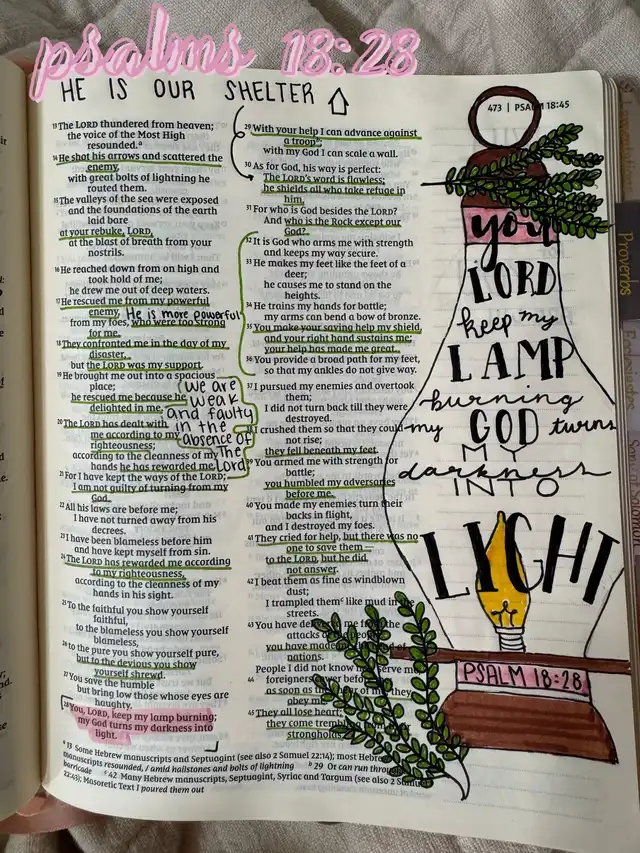 psalms 18:28
HE IS OUR SHELTER
473 | PSALM 18:45
13 The LORD thundered from heaven;
the voice of the Most High
resounded.a
14 He shot his arrows and scattered the
enemy,
with great bolts of lightning he
routed them.
15 The valleys of the sea were exposed
and the foundations of the earth
laid bare
at your rebuke, LORD,
at the blast of breath from your
nostrils.
16 He reached down from on high and
took hold of me;
he drew me out of deep waters.
17 He rescued me from my powerful
enemy,
He is more powerful
from my foes, who were too strong
for me.
18 They confronted me in the day of my
disaster,
but the LORD was my support.
19 He brought me out into a spacious
place;
he rescued me because he
delighted in me.
20 The LORD has dealt with
me according to my
righteousness;
according to the cleanness of my
hands he has rewarded me.
(we are
weak
and faulty
in the
absence of
The
Lord)
21 For I have kept the ways of the LORD;
I am not guilty of turning from my
God.
22 All his laws are before me;
I have not turned away from his
decrees.
23 I have been blameless before him
and have kept myself from sin.
24 The LORD has rewarded me according
to my righteousness,
according to the cleanness of my
hands in his sight.
25 To the faithful you show yourself
faithful,
to the blameless you show yourself
blameless,
26 to the pure you show yourself pure,
but to the devious you show
yourself shrewd.
27 You save the humble
but bring low those whose eyes are
haughty.
28 You, LORD, keep my lamp burning;
my God turns my darkness into
light.
29 With your help I can advance against
a troopb;
with my God I can scale a wall.
30 As for God, his way is perfect:
The LORD's word is flawless;
he shields all who take refuge in
him.
31 For who is God besides the LORD?
And who is the Rock except our
God?
32 It is God who arms me with strength
and keeps my way secure.
33 He makes my feet like the feet of a
deer;
he causes me to stand on the
heights.
34 He trains my hands for battle;
my arms can bend a bow of bronze.
35 You make your saving help my shield,
and your right hand sustains me;
your help has made me great.
36 You provide a broad path for my feet,
so that my ankles do not give way.
37 I pursued my enemies and overtook
them;
I did not turn back till they were
destroyed.
38 I crushed them so that they could
not rise;
they fell beneath my feet.
39 You armed me with strength for
battle;
you humbled my adversaries
before me.
40 You made my enemies turn their
backs in flight,
and I destroyed my foes.
41 They cried for help, but there was no
one to save them—
to the LORD, but he did
not answer.
42 I beat them as fine as windblown
dust;
I trampled themc like mud in the
streets.
43 You have me from the
attacks of the people;
you have made of
nations.
People I did not know serve me,
44 foreigners before
as soon as they hear of me, they
obey me.
45 They all lose heart;
they come trembling
strongholds.
a 13 Some Hebrew manuscripts and Septuagint (see also 2 Samuel 22:14); most Hebrew
manuscripts resounded, / amid hailstones and bolts of lightning b 29 Or can run through
barricade c 42 Many Hebrew manuscripts, Septuagint, Syriac and Targum (see also 2 Samuel
22:43); Masoretic Text I poured them out
you
LORD
keep my
LAMP
burning
my GOD turns
MY
darkness
INTO
LIGHT
PSALM 18:28
Proverbs